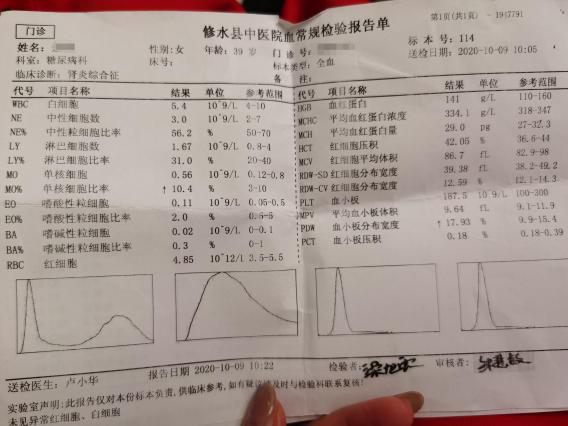 门诊
修水县中医院血常规检验报告单
第1页(共1页) - 1947791
姓名: 性别:女 年龄: 39 岁 门诊号: 标本号: 114
科室: 糖尿病科 床号: 标本类型: 全血 送检日期: 2020-10-09 10:05
临床诊断: 肾炎综合征 备注:
代号 项目名称 结果 单位 参考范围 代号 项目名称 结果 单位 参考范围
WBC 白细胞 5.4 10^9/L 4-10 HGB 血红蛋白 141 g/L 110-160
NE 中性细胞数 3.0 10^9/L 2-7 MCHC 平均血红蛋白浓度 334.1 g/L 318-347
NE% 中性粒细胞比率 56.2 % 50-70 MCH 平均血红蛋白量 29.0 pg 27-32.3
LY 淋巴细胞数 1.67 10^9/L 0.8-4 HCT 红细胞压积 42.05 % 36.6-44
LY% 淋巴细胞比率 31.0 % 20-40 MCV 红细胞平均体积 86.7 fL 82.9-98
MO 单核细胞 0.56 10^9/L 0.12-0.8 RDW-SD 红细胞分布宽度 39.38 fL 38.2-49.2
MO% 单核细胞比率 ↑ 10.4 % 3-10 RDW-CV 红细胞分布宽度 12.59 % 12.1-14.3
EO 嗜酸性粒细胞 0.11 10^9/L 0.05-0.5 PLT 血小板 187.5 10^9/L 100-300
EO% 嗜酸性粒细胞比率 2.0 % 0.5-5 MPV 平均血小板体积 9.64 fL 9.1-11.9
BA 嗜碱性粒细胞 0.02 10^9/L 0-0.1 PDW 血小板分布宽度 ↑ 17.93 % 9.9-15.4
BA% 嗜碱性粒细胞比率 0.3 % 0-1 PCT 血小板压积 0.18 % 0.18-0.39
RBC 红细胞 4.85 10^12/L 3.5-5.5
送检医生: 卢小华 报告日期 2020-10-09 10:22 检验者: 审核者:
实验室声明:此报告仅对本份标本负责,供临床参考,如有疑议请及时与检验科联系复核!
未见异常红细胞、白细胞